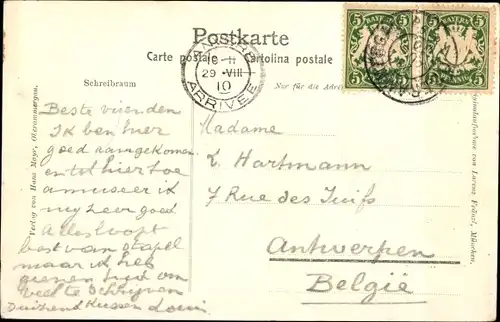 Postkarte
Carte postale Cartolina postale
Schreibraum
Nur für die Adresse
ANVERS
10-11
29 VIII
10
ARRIVEE
5 5
BAYERN BAYERN
Beste vrienden
Ik ben hier
goed aangekomen
en tot hiertoe
amuseer ik
mij zeer goed
Alles loopt
best van stapel
maar ik heb
geenen tijd om
veel te schrijven
Duizend Kussen Louis
Madame
L. Hartmann
7 Rue des Juifs
Antwerpen
Belgie
Verlag von Hans Mayr, Oberammergau.
Originalaufnahme von Lorenz Fränzl, München.